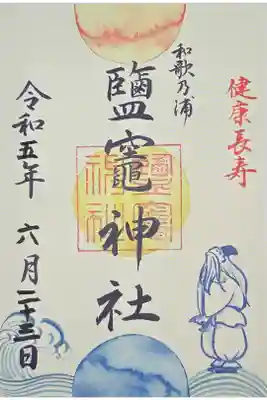 健康長寿
和歌乃浦
鹽竈神社
令和五年 六月二十三日